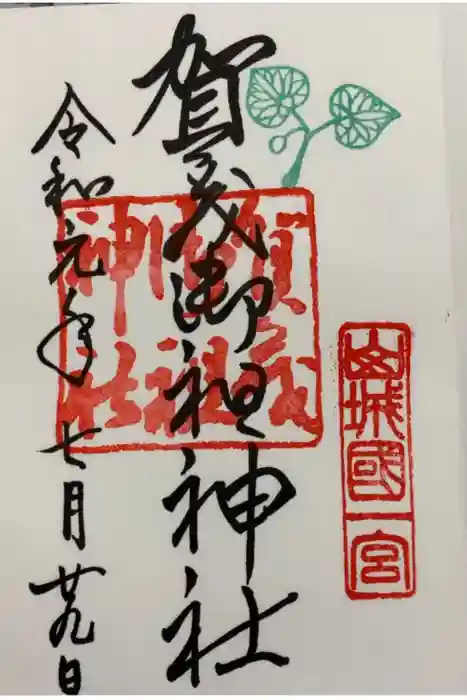 山城國一宮
賀茂御祖神社
賀茂御祖神社
令和元年七月廿九日